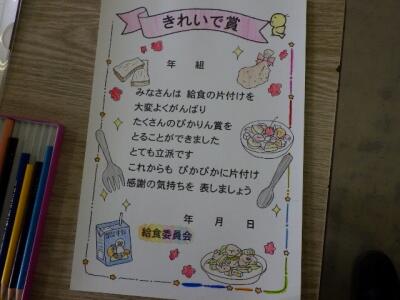 きれいで賞
年 組
みなさんは 給食の片付けを
大変よくがんばり
たくさんのぴかりん賞を
とることができました
とても立派です
これからも ぴかぴかに片付け
感謝の気持ちを 表しましょう
年 月 日
給食委員会